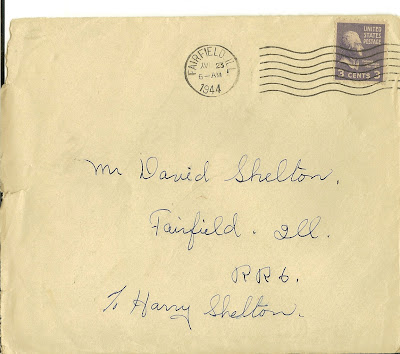 FAIRFIELD, ILL.
23
6-AM
1944
UNITED STATES POSTAGE
3 CENTS 3
Mr David Shelton.
Fairfield. Ill.
RR6.
% Harry Shelton.